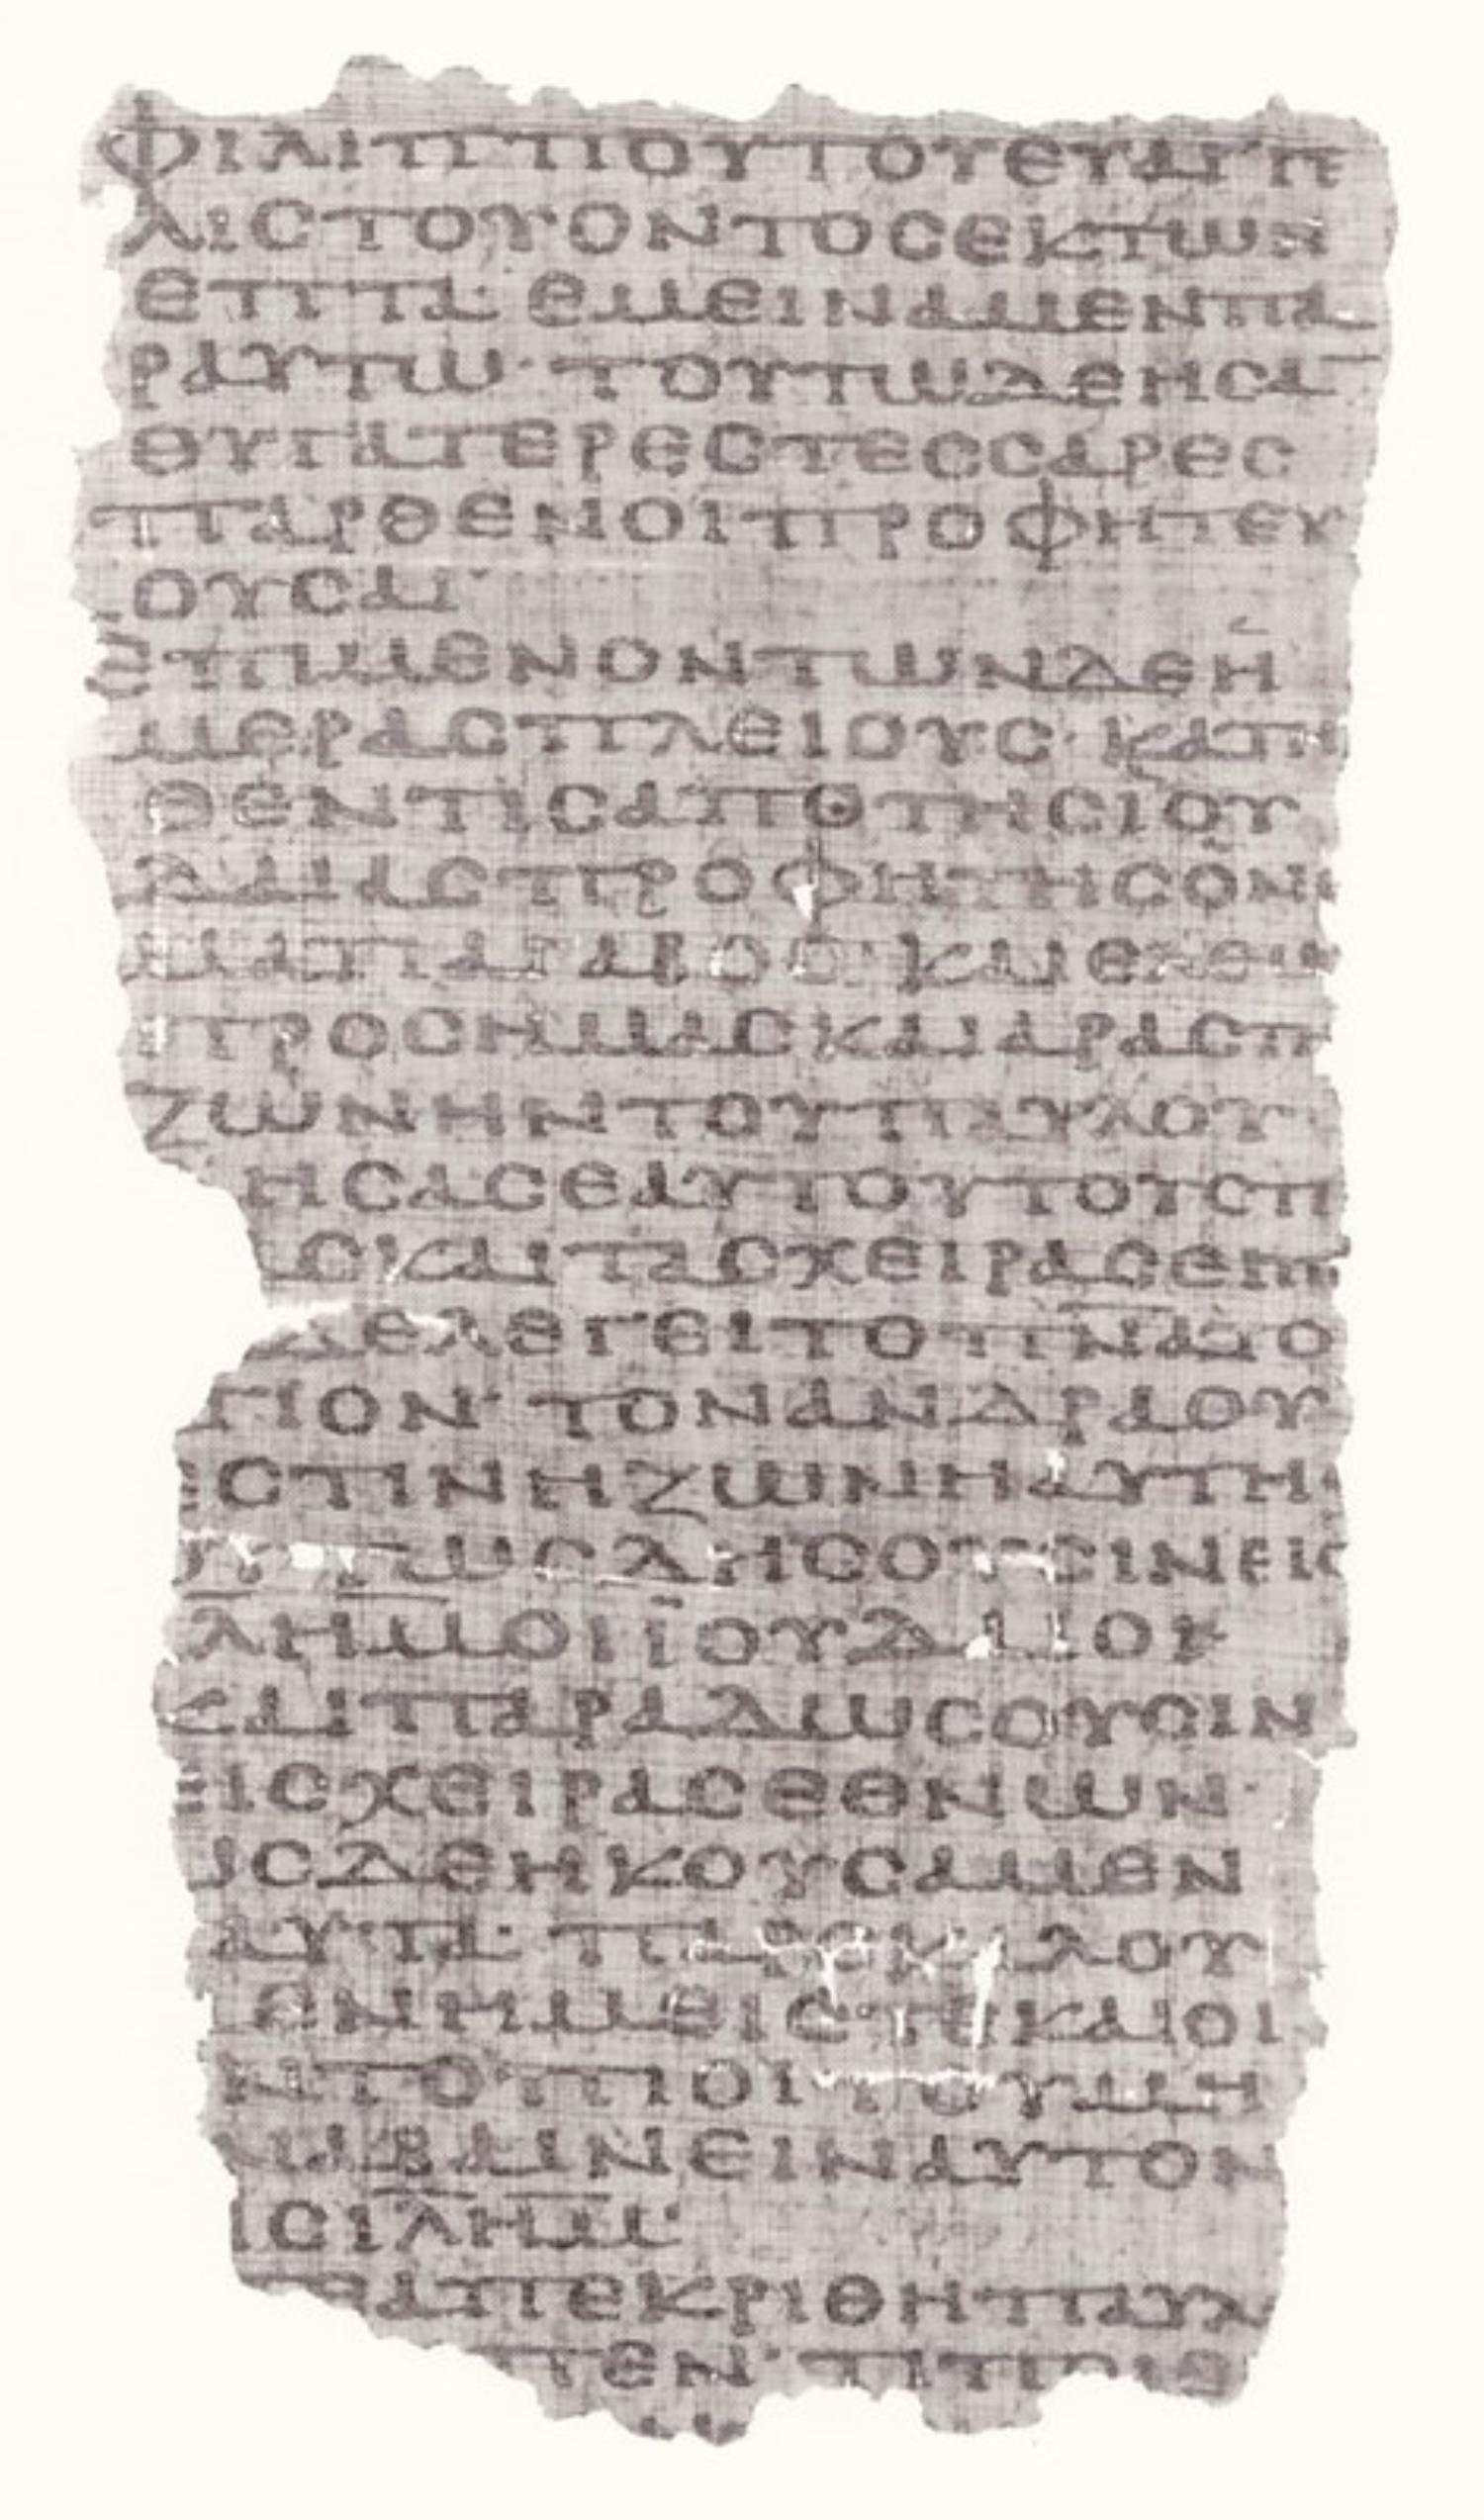 ΦΙΛΙΠΠΟΥΤΟΥΕΥΑΓΓΕ
ΛΙϹΤΟΥΟΝΤΟϹΕΚΤΩΝ
ΕΠΤΑ· ΕΜΕΙΝΑΜΕΝΠΑ
ΡΑΥΤΩ· ΤΟΥΤΩΔΕΗϹΑ̅
ΘΥΓΑΤΕΡΕϹΤΕϹϹΑΡΕϹ
ΠΑΡΘΕΝΟΙΠΡΟΦΗΤΕΥ
ΟΥϹΑΙ·
ΕΠΙΜΕΝΟΝΤΩΝΔΕΗ
ΜΕΡΑϹΠΛΕΙΟΥϹ· ΚΑΤΗ
ΘΕΝΤΙϹΑΠΟΤΗϹΙΟΥ
ΔΑΙΑϹΠΡΟΦΗΤΗϹΟΝ
ΜΑΤΙΑΓΑΒΟϹ· ΚΑΙΕΛΘΩ
ΠΡΟϹΗΜΑϹΚΑΙΑΡΑϹΤΗ
ΖΩΝΗΝΤΟΥΠΑΥΛΟΥ
ΗϹΑϹΕΑΥΤΟΥΤΟΥϹΠ
ΑϹΚΑΙΤΑϹΧΕΙΡΑϹΕΙΠΕ
ΔΕΛΕΓΕΙΤΟΠ̅Ν̅ΑΤΟ
ΓΙΟΝ· ΤΟΝΑΝΔΡΑΟΥ
ΕϹΤΙΝΗΖΩΝΗΑΥΤΗ
ΟΥΤΩϹΔΗϹΟΥϹΙΝΕΙϹ
ΛΗΜΟΙΪΟΥΔΑΙΟΙ
ΚΑΙΠΑΡΑΔΩϹΟΥϹΙΝ
ΕΙϹΧΕΙΡΑϹΕΘΝΩΝ·
ΩϹΔΕΗΚΟΥϹΑΜΕΝ
ΑΥΤΑ· ΠΑΡΕΚΑΛΟΥ
ΕΝΗΜΕΙϹΤΕΚΑΙΟΙ
ΕΝΤΟΠΙΟΙΤΟΥΜΗ
ΑΝΑΒΑΙΝΕΙΝΑΥΤΟΝ
ΙϹΙΛΗΜ·
ΤΕΑΠΕΚΡΙΘΗΠΑΥΛ
ΠΕΝ· ΤΙΠΟΙΕ